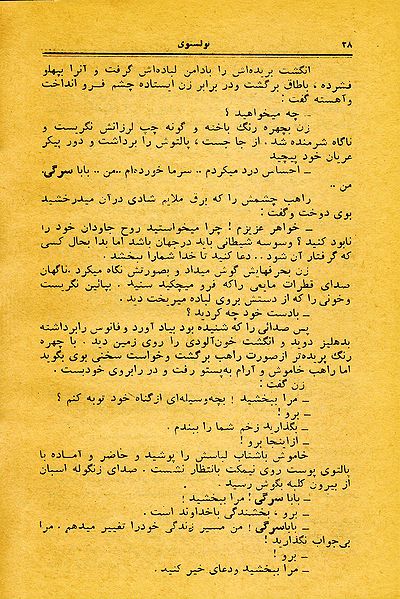 ۲۸ تولستوی
انگشت بریده‌اش را بادامن لباده‌اش گرفت و آنرا بپهلو
فشرده ، باطاق برگشت ودر برابر زن ایستاده چشم فرو انداخت
وآهسته گفت :
ــ چه میخواهید ؟
زن بچهره رنگ باخته و گونه چپ لرزانش نگریست و
ناگاه شرمنده شد . از جا جست ، پالتوش را برداشت و دور پیکر
عریان خود پیچید
ــ احساس درد میکردم .. سرما خورده‌ام ..من .. بابا سرگی.
من ..
راهب چشمش را که برق ملایم شادی درآن میدرخشید
بوی دوخت وگفت :
ــ خواهر عزیزم ! چرا میخواستید روح جاودان خود را
نابود کنید ؟ وسوسه شیطانی باید درجهان باشد اما بدا بحال کسی
که گرفتار آن شود . . دعا کنید تا خدا شمارا ببخشد .
زن بحرفهایش گوش میداد و بصورتش نگاه میکرد .ناگهان
صدای قطرات مایعی راکه فرو میچکید شنید . بپائین نگریست
وخونی را که از دستش بروی لباده میریخت دید .
ــ بادست خود چه کردید ؟
پس صدائی را که شنیده بود بیاد آورد و فانوس رابرداشته
بدهلیز دوید و انگشت خون‌آلودی را روی زمین دید . با چهره
رنگ پریده‌تر ازصورت راهب برگشت وخواست سخنی بوی بگوید
اما راهب خاموش و آرام به‌پستو رفت و در رابروی خودبست .
زن گفت :
ــ مرا ببخشید ! بچه‌وسیله‌ای ازگناه خود توبه کنم ؟
ــ برو !
ــ بگذارید زخم شما را ببندم .
ــ ازاینجا برو !
خاموش باشتاب لباسش را پوشید و حاضر و آماده با
پالتوی پوست روی نیمکت بانتظار نشست . صدای زنگوله اسبان
از بیرون کلبه بگوش رسید .
ــ بابا سرگی ! مرا ببخشید !
ــ برو ، بخشندگی باخداوند است .
ــ باباسرگی ! من مسیر زندگی خودرا تغییر میدهم . مرا
بی‌جواب نگذارید !
ــ برو !
ــ مرا ببخشید ودعای خیر کنید .